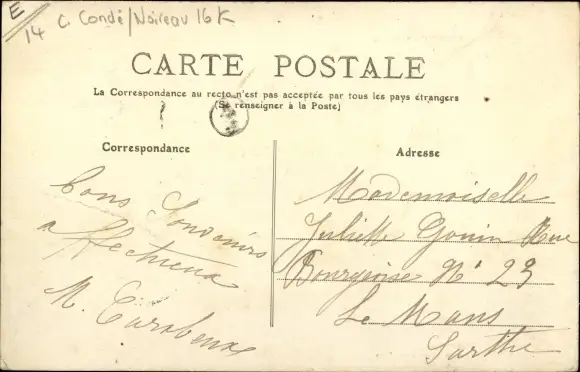 E
14 C. Condé/Noireau 16K
CARTE POSTALE
La Correspondance au recto n'est pas acceptée par tous les pays étrangers
(Se renseigner à la Poste)
Correspondance
Bons Souvenirs
affectueux
M.
Adresse
Mademoiselle
Juliette Gouin Rue
Bourgeoise N° 23
Le Mans
Sarthe